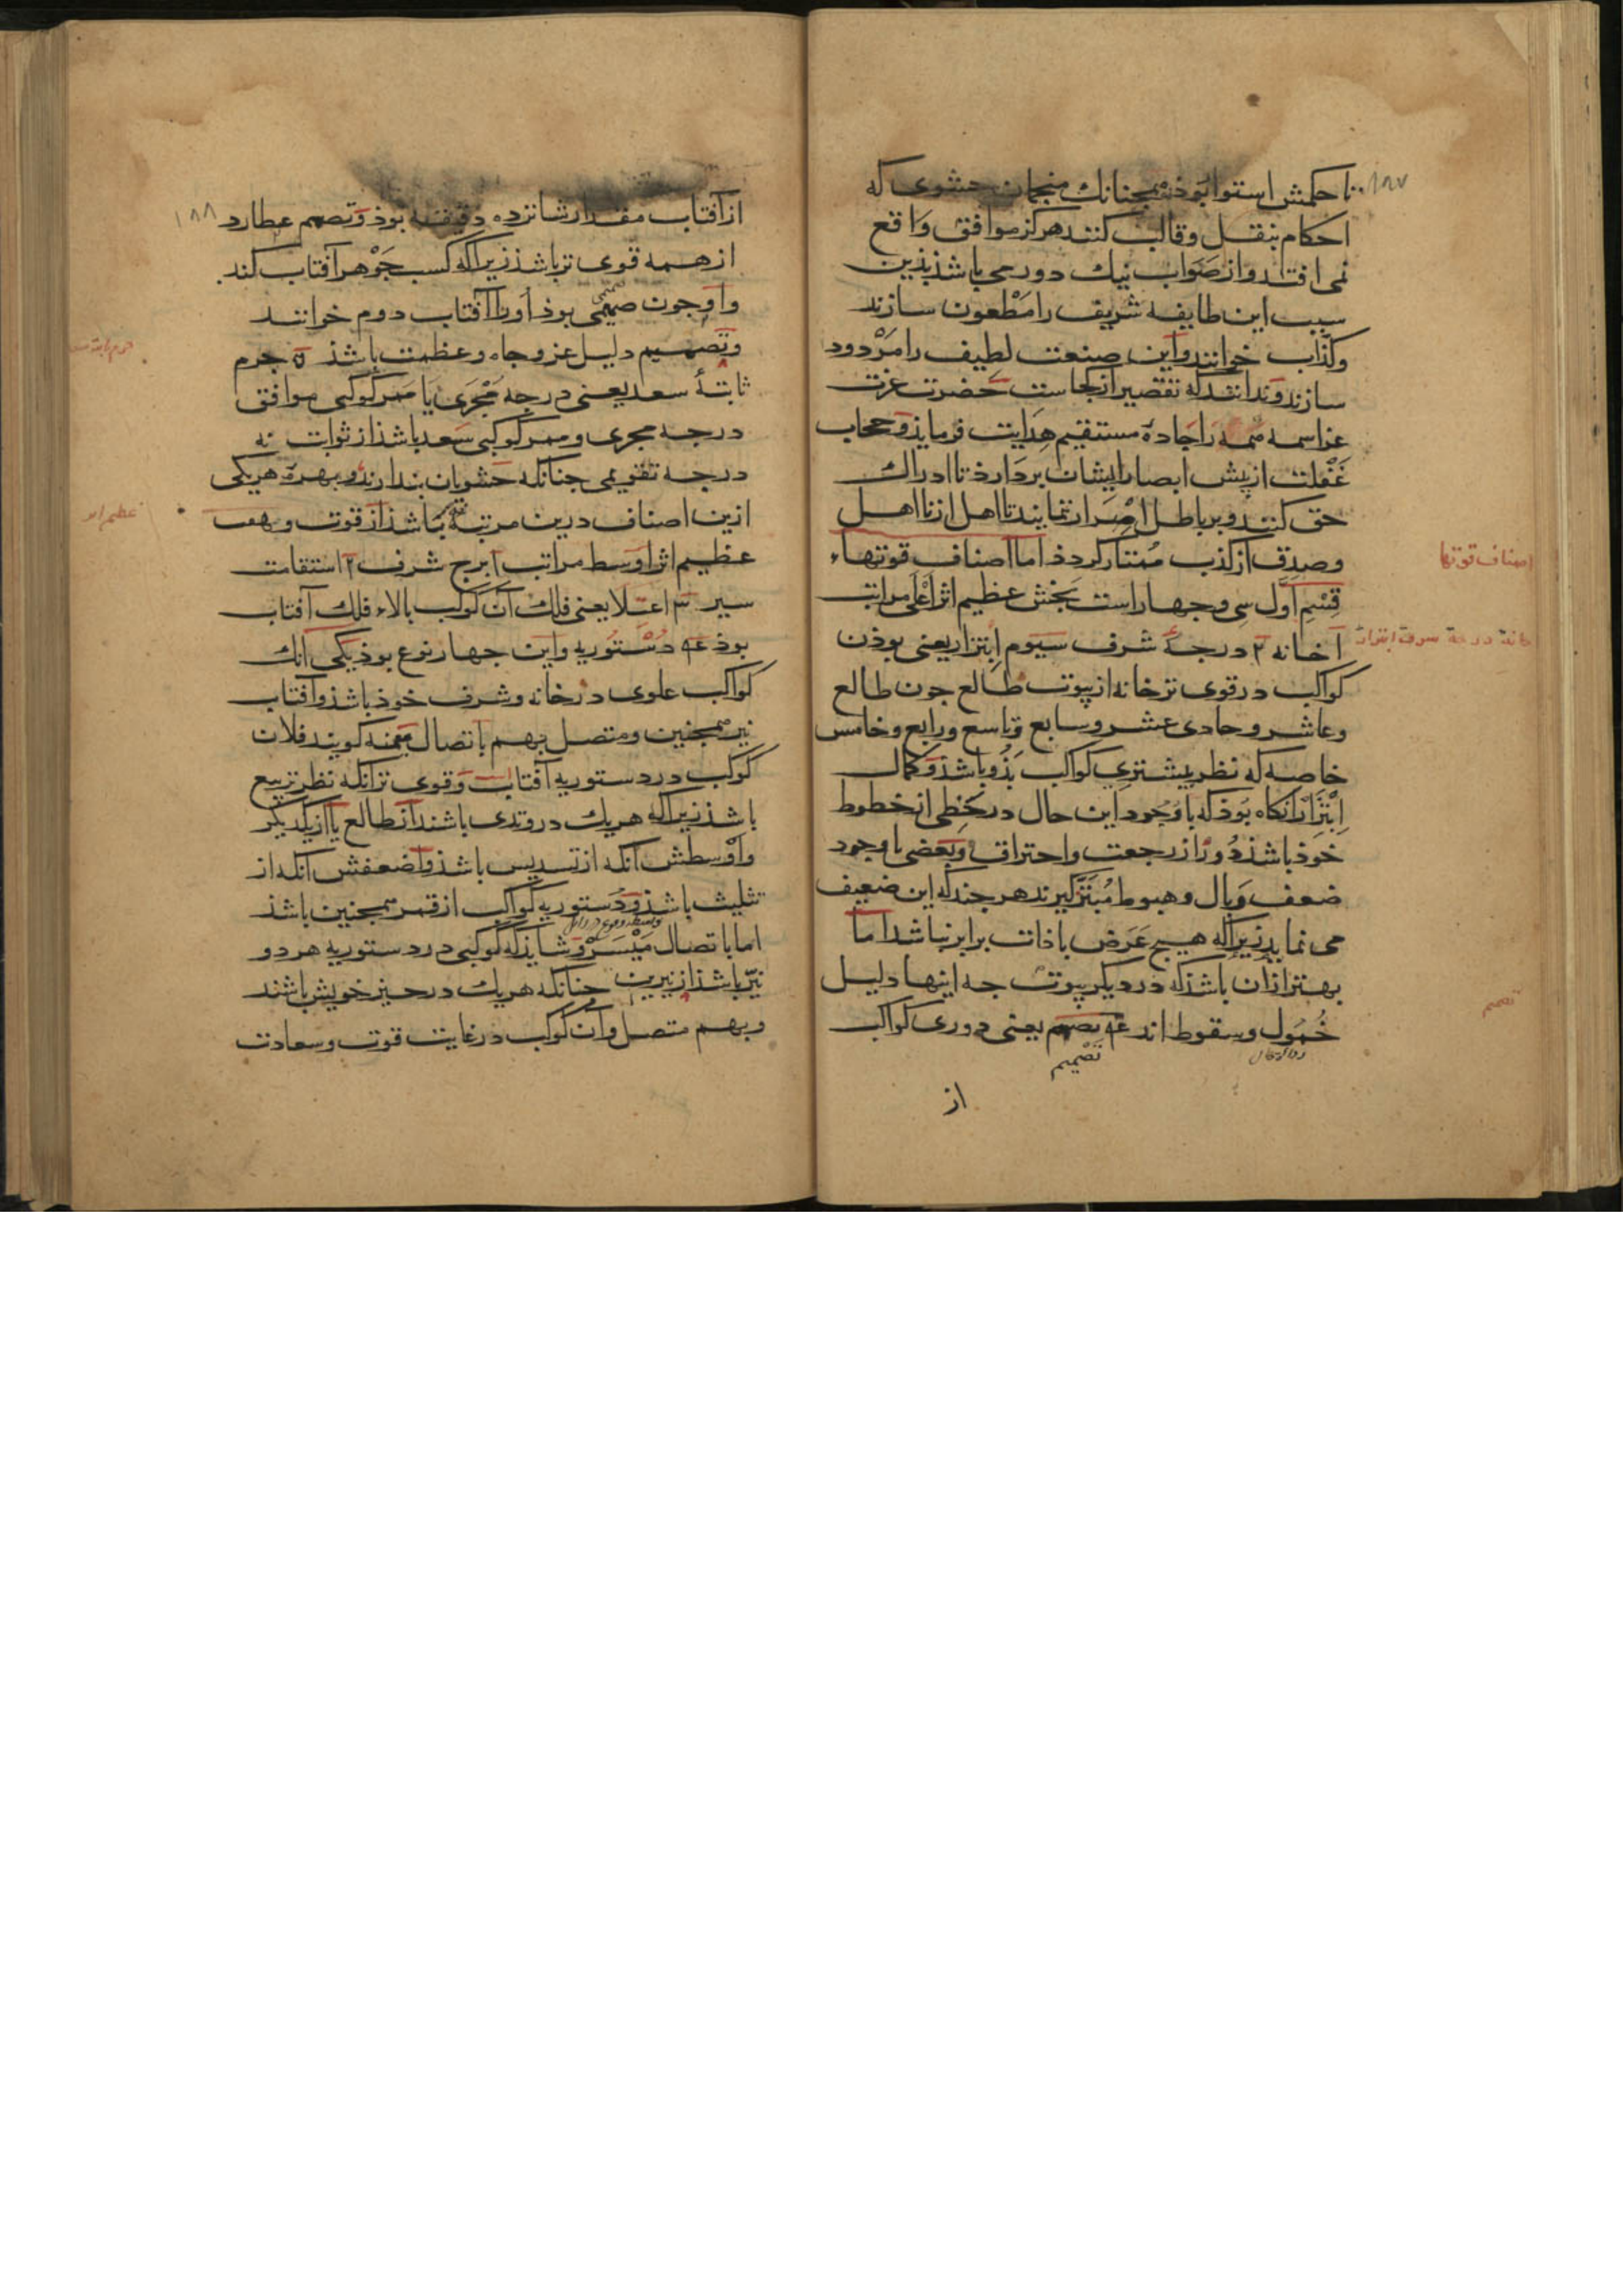 ۱۸۷
تا حکمش استوا بوذ همچنانك منجمان حشوی که
احکام بنقل و قالب کنند هرکز موافق واقع
نمی افتد و از صَوَاب نیك دور می باشذ بذین
سبب این طایفه شریف را مَطْعون سازند
و کذاب خوانند و این صنعت لطیف را مَرْدود
سازند و ندانند که تقصیر از کجاست حضرت عزت
عز اسمه همه را جادهٔ مستقیم هِدایت فرمایذ و حجاب
غَفْلت از پیش ابصار ایشان بردارد تا ادراك
حق کنند و بر باطل اِصْرار ننمایند تا اهل از نااهل
و صدق از کذب مُمتاز کردذ اما اصناف قوتهاء
اصناف قوتها
قِسْمِ اَوّل سی و چهار است بخش عظیم اثر اَعْلَی مراتب
آ خانه ۲ درجهٔ شرف سیوم اِبتزاز یعنی بوذن
خانه درجة شرف ابتزاز
کواکب در قوی تر خانه از بیوت طالع چون طالع
و عاشر و حادی عشر و سابع و تاسع و رابع و خامس
خاصه که نظر بیشتری کواکب بَذو باشذ و کمال
اِبْتِزاز آنکاه بَوذ که با وجود این حال در حَظی از حظوظ
خوذ باشذ و دُور از رجعت و احتراق و بَعضی با وجود
ضعف وَبال و هبوط مُبتزّ کیرند هر چند که این ضعیف
می نماید زیرا که هیچ عَرَض با ذات برابر نباشد اما
بهتر از ان باشذ که در دیکر بیوت چه اینها دلیل
خُمُول و سقوط اند عه تصمیم یعنی دوری کواکب
تَصْمیم
تصمیم
از
۱۸۸
از آفتاب مقدار شانزده دقیقه بوذ و تصمیم عطارد
از همه قوی تر باشذ زیرا که کسب جَوْهر آفتاب کند
و او چون صمیمی بوذ او را آفتاب دوم خوانند
و تصمیم دلیل عز و جاه و عظمت باشذ ۵ جرم
ثابتهٔ سعد یعنی درجه مَجْرَی یا مَمَر کوکبی موافق
درجه مجری و ممر کوکبی سَعد باشذ از ثوابت نه
درجه تقویمی چنانکه حشویان پندارند و بهرهٔ هریکی
ازین اصناف درین مرتبهٔ باشذ از قوت و بهت
عظیم اثر اوسط مراتب آ برج شرف ۲ استقامت
عظیم اثر
سیر ۳ اعتلا یعنی فلك آن کوکب بالاء فلك آفتاب
بوذ عه دُسْتُوریه و این چهار نوع بوذ یکی آنك
کواکب علوی در خانه و شرف خوذ باشذ و آفتاب
نیز همچنین و متصل بهم باتصال میمنه کویند فلان
کوکب در دستوریه آفتابست و قوی تر آنکه نظر تربیع
باشذ زیرا که هریك در وتدی باشند از طالع یا از یکدیکر
و اوْسطش آنکه از تسدیس باشذ و اضعفش آنکه از
تثلیث باشذ و دُستوریه کواکب از قمر همچنین باشذ
اما باتصال مَیْسَره و شاید که کوکبی در دستوریه هر دو
نیّر باشذ از نیرین چنانکه هریك در حیز خویش باشند
و بهم متصل و آن کوکب در غایت قوت و سعادت